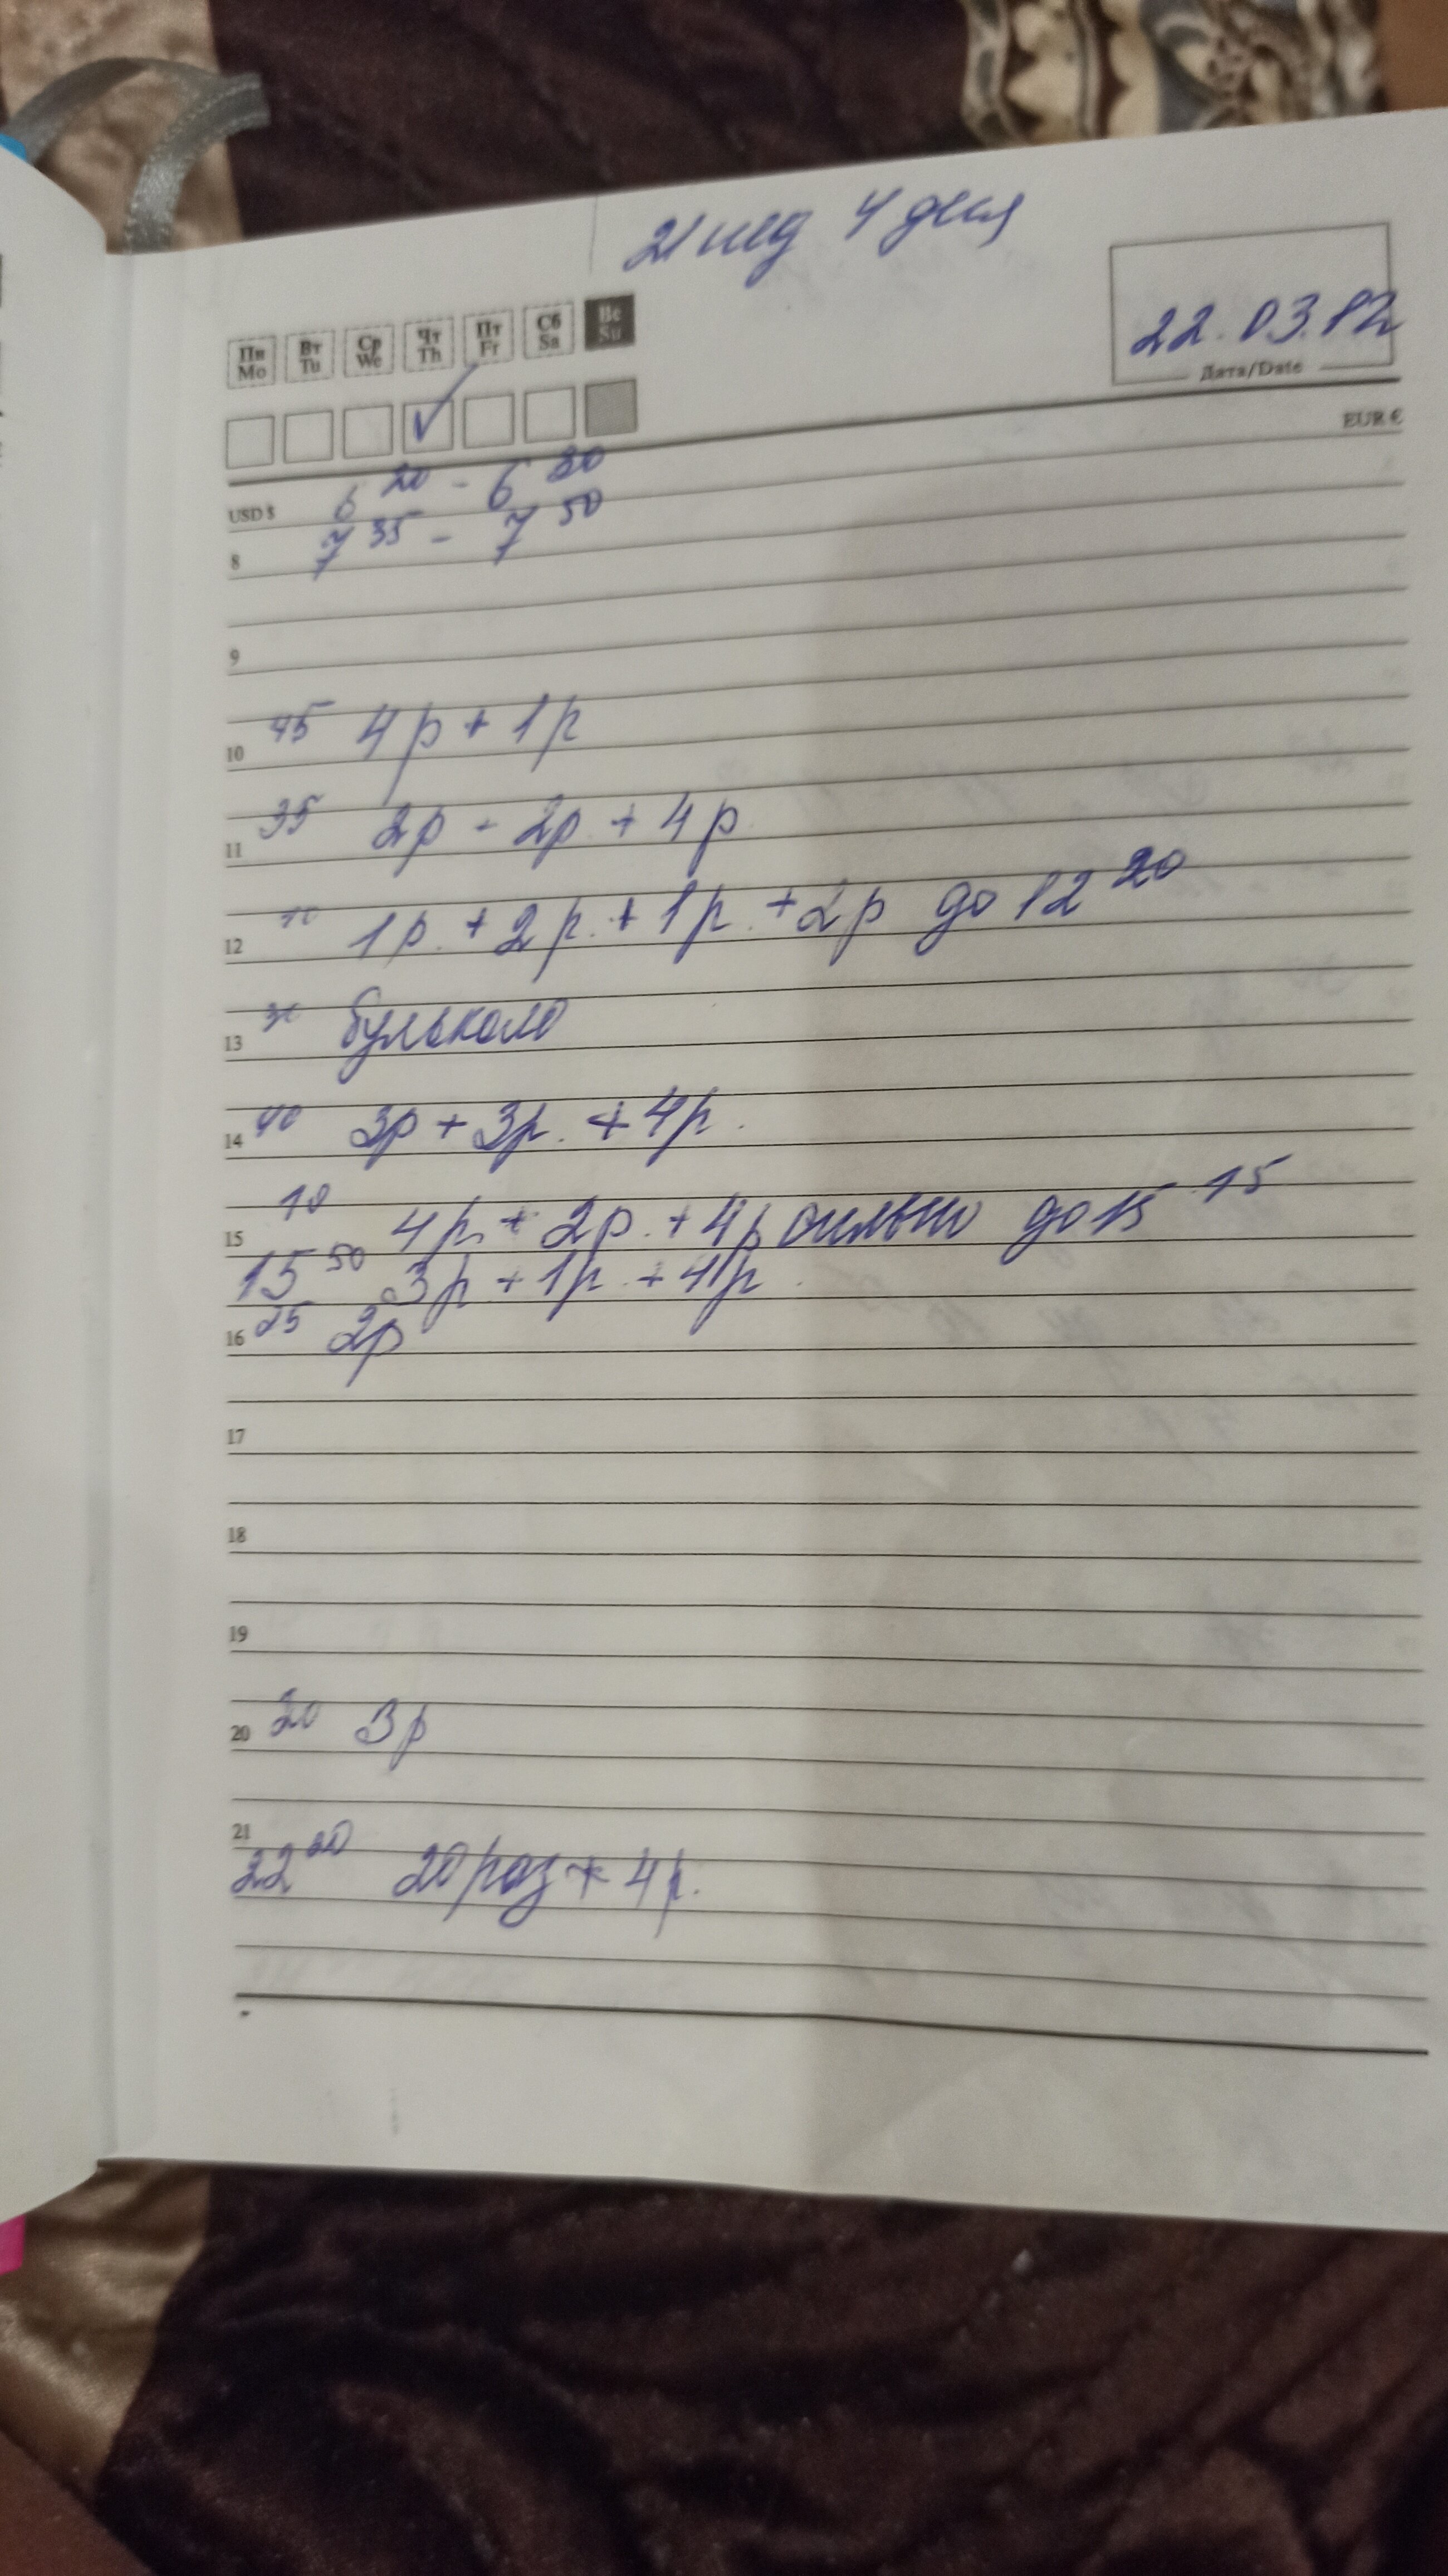 21 нед 4 дня
22.03.12
Дата/Date
Пн Вт Ср Чт Пт Сб Вс
Mo Tu We Th Fr Sa Su
✓
EUR €
USD $ 6 20 - 6 30
8 7 35 - 7 50
9
10 45 4р + 1р
11 35 2р - 2р + 4р
12 10 1р. + 2р. + 1р. + 2р до 12 20
13 30 булькало
14 40 3р + 3р. + 4р.
15 10 4р. + 2р. + 4р сильно до 15 15
15 50 3р + 1р. + 4р.
16 25 2р
17
18
19
20 20 3р
21
22 20 раз + 4р.